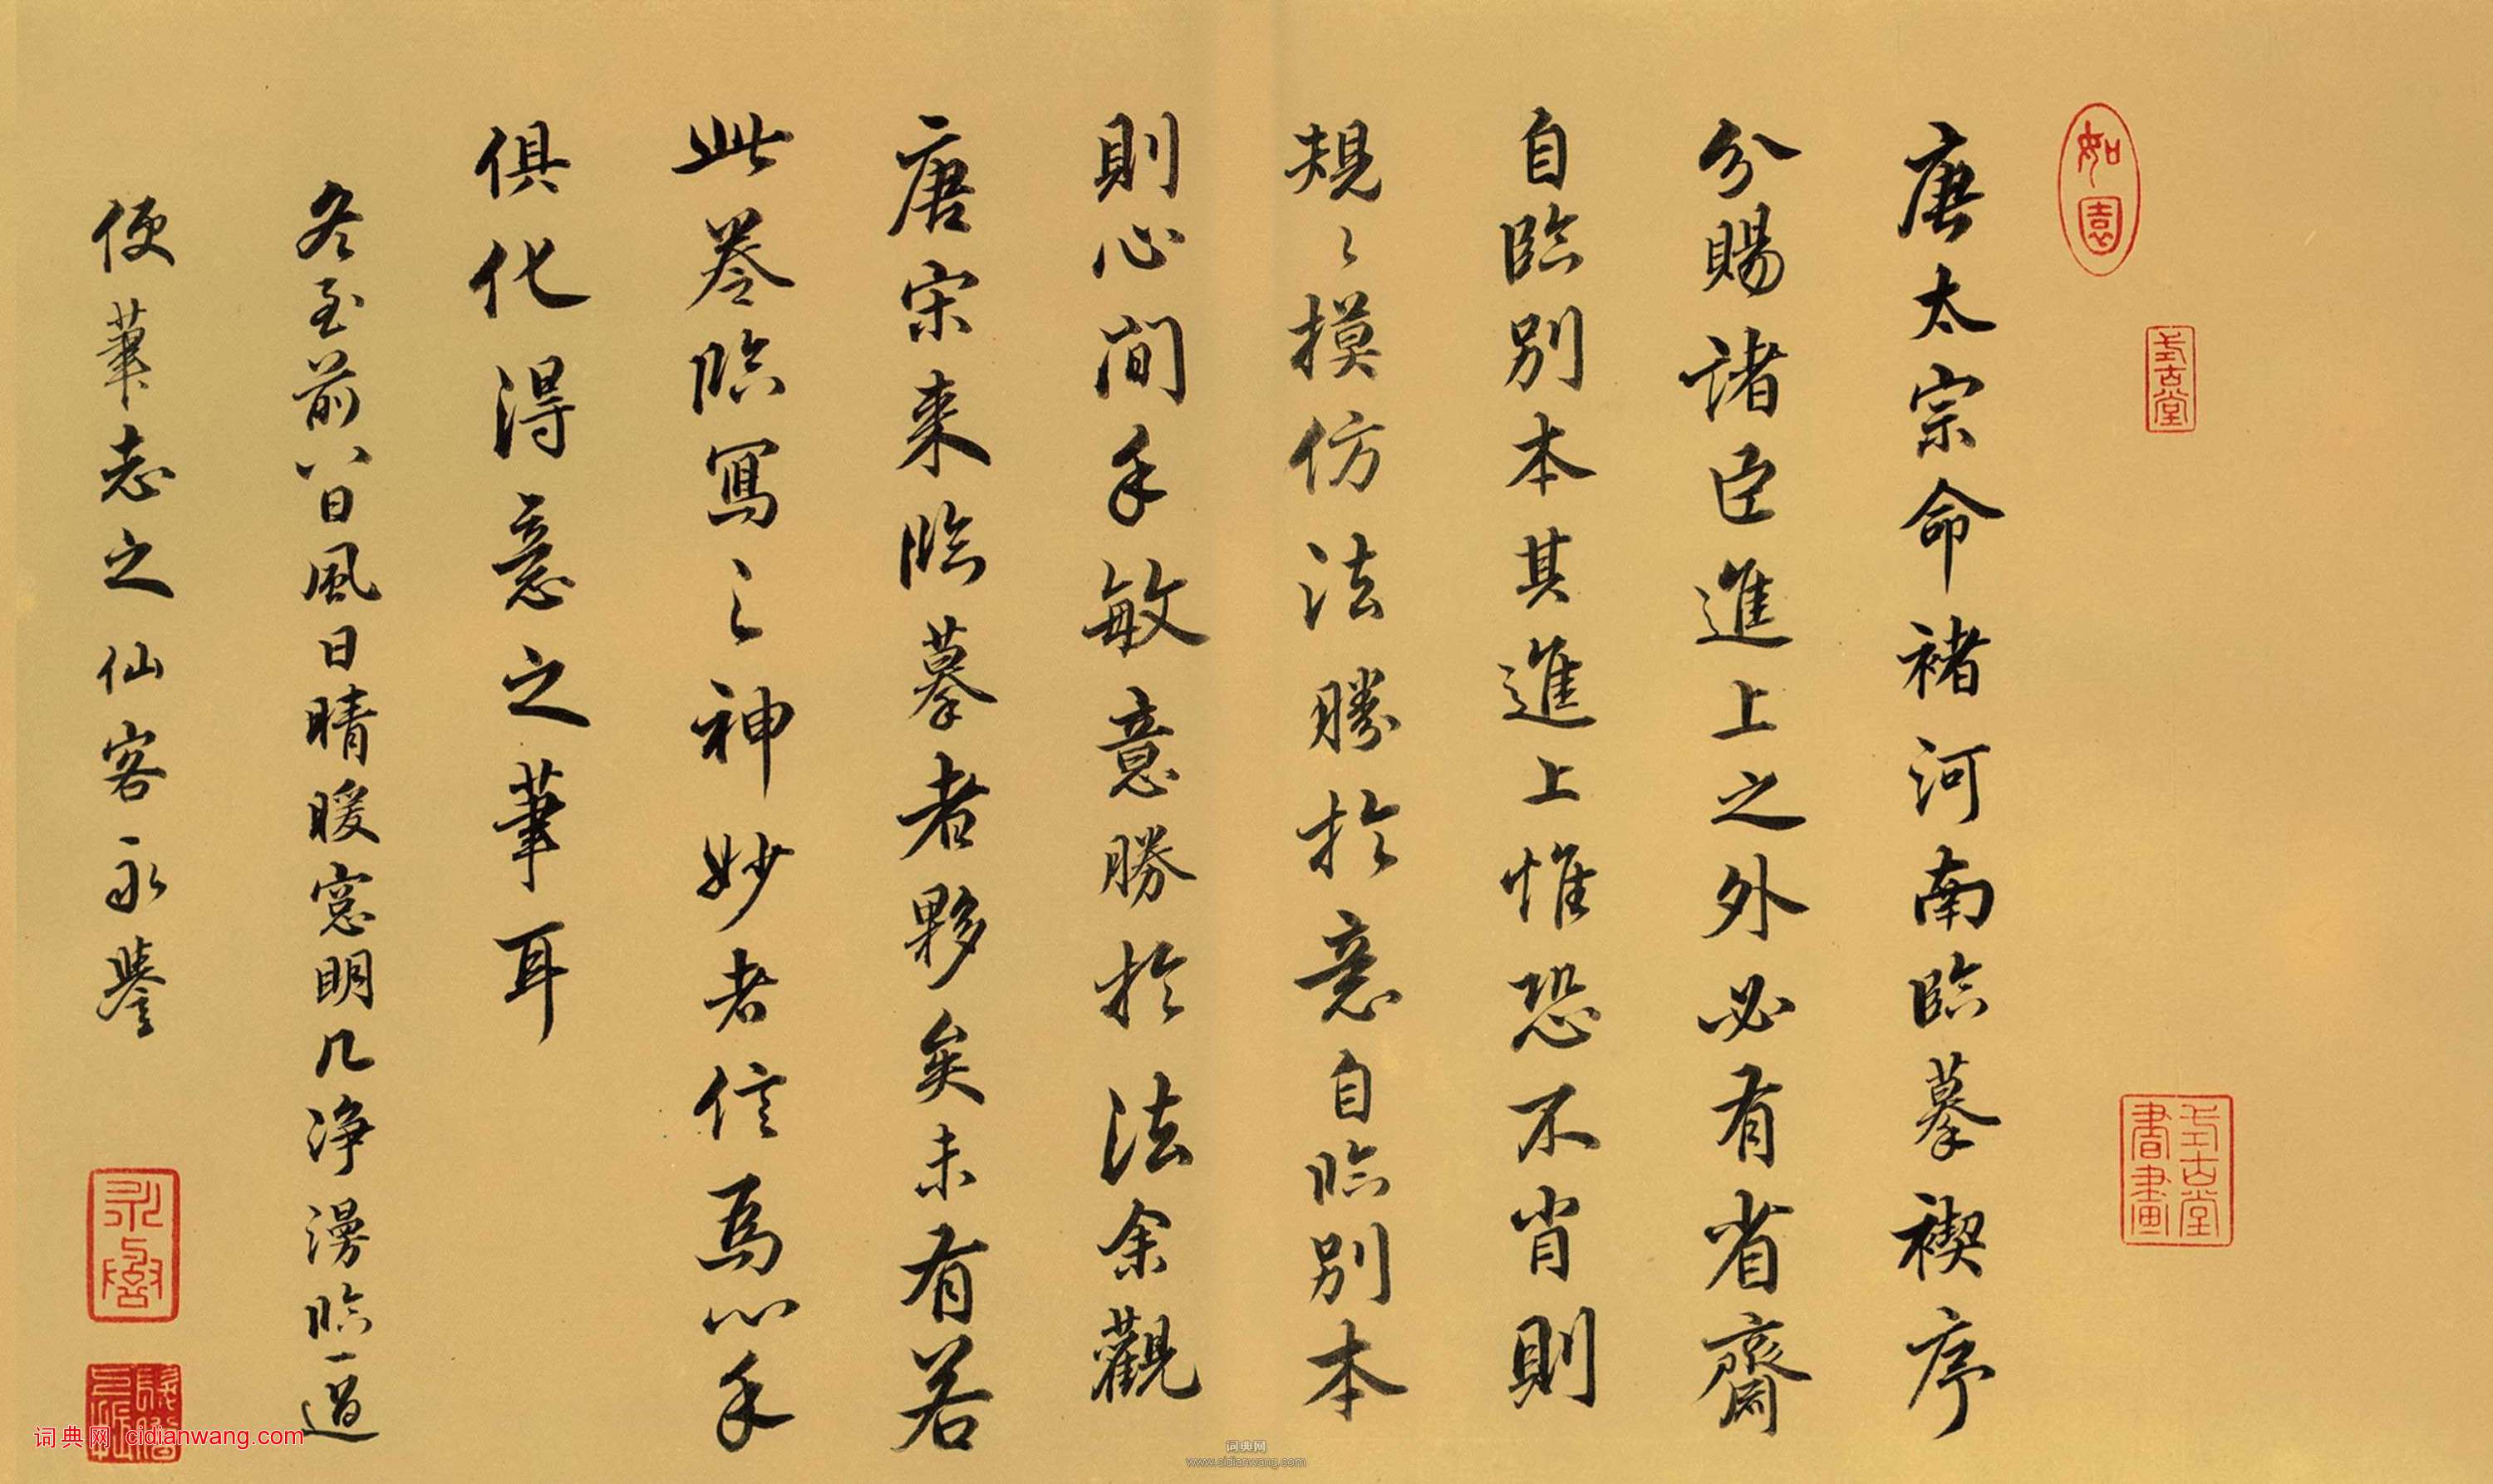 如園
式古堂
式古堂書畫
唐太宗命褚河南臨摹禊序
分賜諸臣進上之外必有省齋
自臨別本其進上惟恐不肖則
規〻摸仿法勝於意自臨別本
則心閒手敏意勝於法余觀
唐宋来臨摹者夥矣未有若
此卷臨寫之神妙者信為心手
俱化得意之筆耳
冬至前八日風日晴暖窓明几浄漫臨一過
便筆志之仙客永譽
词典网 cidianwang.com
词典网
www.cidianwang.com